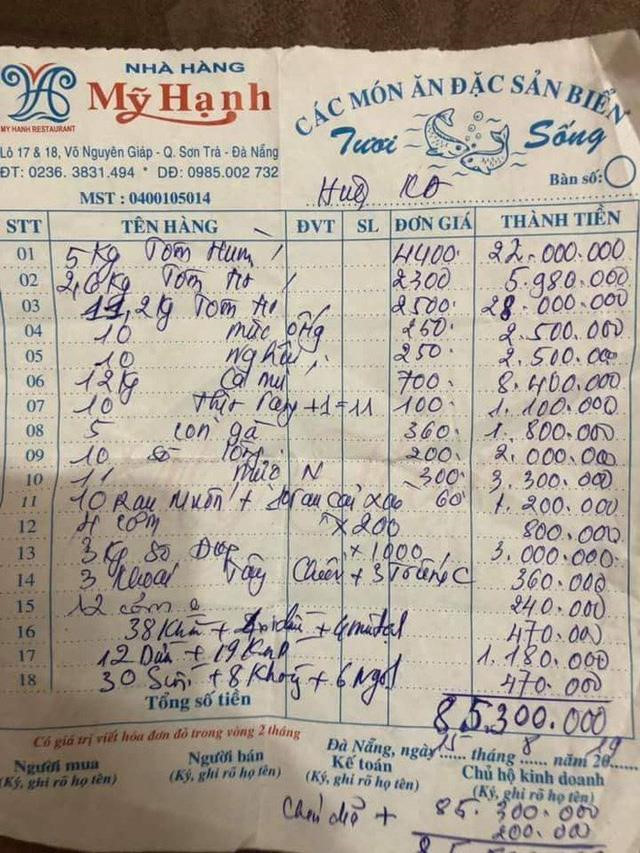 NHÀ HÀNG
Mỹ Hạnh
MY HANH RESTAURANT
CÁC MÓN ĂN ĐẶC SẢN BIỂN
Tươi Sống
Lô 17 & 18, Võ Nguyên Giáp - Q. Sơn Trà - Đà Nẵng
ĐT: 0236. 3831.494 * DĐ: 0985.002 732
Bàn số:
MST : 0400105014
STT TÊN HÀNG ĐVT SL ĐƠN GIÁ THÀNH TIỀN
01 5 Kg Tôm Hum 4400 22.000.000
02 2,6 Kg Tôm 2300 5.980.000
03 11,2 Kg Tom 2500 28.000.000
04 10 mức ống 250 2.500.000
05 10 nghêu 250 2.500.000
06 12 Kg Cá mú 700 8.400.000
07 10 Thịt +1=11 100 1.100.000
08 5 con gà 360 1.800.000
09 10 số 200 2.000.000
10 11 mức N 300 3.300.000
11 10 Rau Muốn + rau cải xào 60 1.200.000
12 4 cơm x 200 800.000
13 3 Kg x 1000 3.000.000
14 3 Khoai Tây Chiên + 3 Trứng C 360.000
15 12 cơm 240.000
16 38 Khăn + + 4 470.000
17 12 Dừa + 19 Ken 1.180.000
18 30 Suối + 8 + 6 Ngọt 470.000
Tổng số tiền 85.300.000
Có giá trị viết hóa đơn đỏ trong vòng 2 tháng
Đà Nẵng, ngày 15 tháng 8 năm 2019
Người mua Người bán Kế toán Chủ hộ kinh doanh
(Ký, ghi rõ họ tên) (Ký, ghi rõ họ tên) (Ký, ghi rõ họ tên) (Ký, ghi rõ họ tên)
+ 85.300.000
200.000